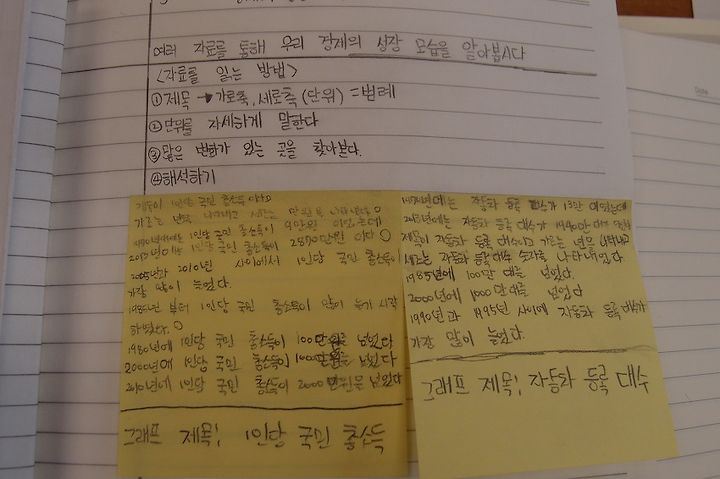 여러 자료를 통해 우리 경제의 성장 모습을 알아봅시다
<자료를 읽는 방법>
①제목 → 가로축, 세로축 (단위) = 범례
②단위를 자세하게 말한다
③많은 변화가 있는 곳을 찾아본다.
④해석하기
제목이 1인당 국민 총소득 이다
가로는 년도를 나타내고 세로는 만원을
1인당 국민 총소득이 9만원 이었는데
2015년에는 1인당 국민 총소득이 2870만원 이다
2005년과 2010년 사이에서 1인당 국민 총소득이
가장 많이 늘었다.
1985년 부터 1인당 국민 총소득이 많이 늘기 시작
하였다.
1980년에 1인당 국민 총소득이 100만원을 넘었다
2000년에 1인당 국민 총소득이 1000만원을 넘었다
2010년에 1인당 국민 총소득이 2000만원을 넘었다
그래프 제목: 1인당 국민 총소득
자동차 등록 대수가 13만 이었는데
2015년에는 자동차 등록 대수가 1990만 대
제목이 자동차 등록 대수이고 가로는 년도를 나타내고
세로는 자동차 등록대수 숫자를 나타내었다.
1985년에 100만 대를 넘었다.
2000년에 1000만대를 넘었다
1990년과 1995년 사이에 자동차 등록 대수가
가장 많이 늘었다.
그래프 제목: 자동차 등록 대수